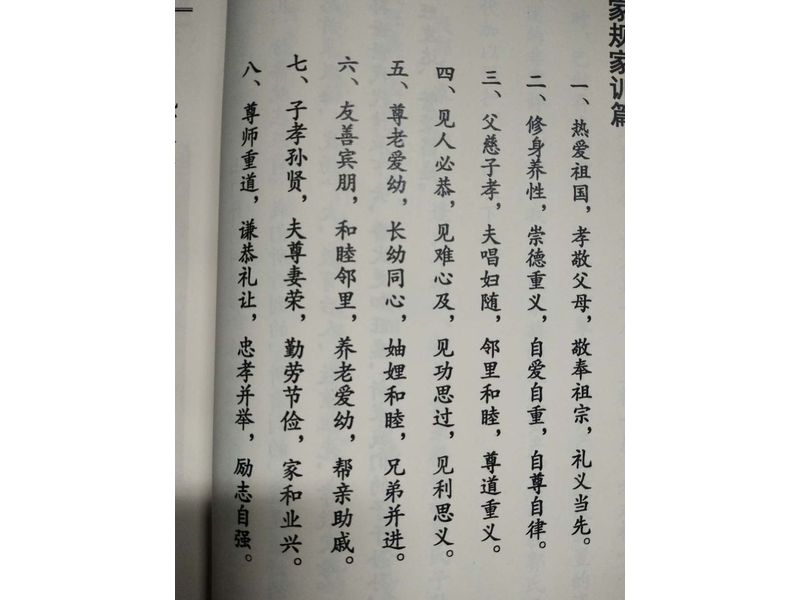 家规家训篇
一、热爱祖国，孝敬父母，敬奉祖宗，礼义当先。
二、修身养性，崇德重义，自爱自重，自尊自律。
三、父慈子孝，夫唱妇随，邻里和睦，尊道重义。
四、见人必恭，见难心及，见功思过，见利思义。
五、尊老爱幼，长幼同心，妯娌和睦，兄弟并进。
六、友善宾朋，和睦邻里，养老爱幼，帮亲助戚。
七、子孝孙贤，夫尊妻荣，勤劳节俭，家和业兴。
八、尊师重道，谦恭礼让，忠孝并举，励志自强。